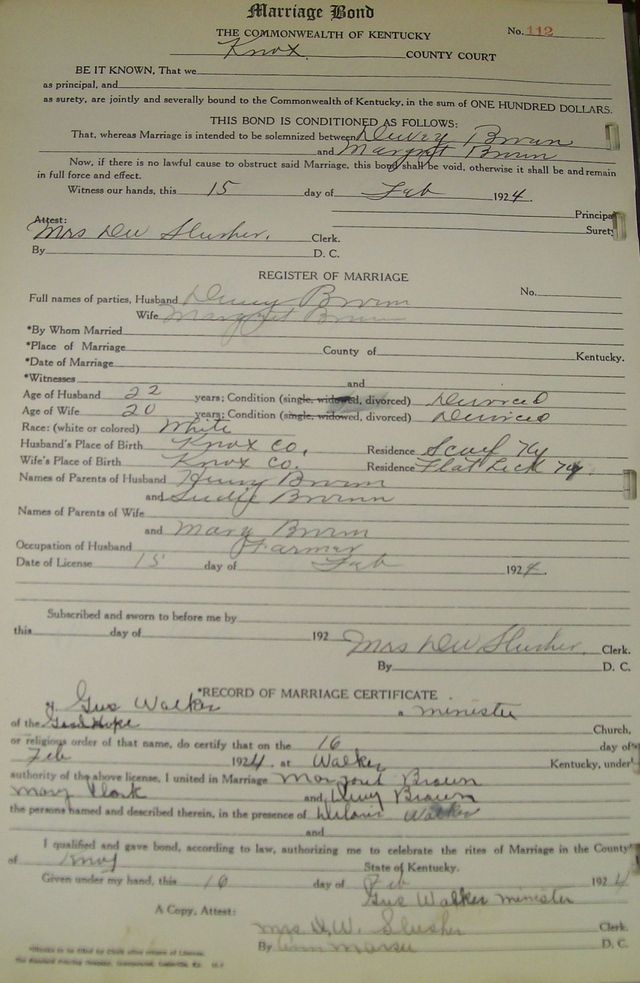 Marriage Bond
THE COMMONWEALTH OF KENTUCKY No. 112
Knox COUNTY COURT
BE IT KNOWN, That we
as principal, and
as surety, are jointly and severally bound to the Commonwealth of Kentucky, in the sum of ONE HUNDRED DOLLARS.
THIS BOND IS CONDITIONED AS FOLLOWS:
That, whereas Marriage is intended to be solemnized between Dewey Brown
and Margret Brown
Now, if there is no lawful cause to obstruct said Marriage, this bond shall be void, otherwise it shall be and remain
in full force and effect.
Witness our hands, this 15 day of Feb 1924.
Principal
Attest: Surety
Mrs DW Slusher. Clerk.
By D. C.
REGISTER OF MARRIAGE
Full names of parties, Husband Brown No.
Wife Margret Brown
*By Whom Married
*Place of Marriage County of Kentucky.
*Date of Marriage
*Witnesses and
Age of Husband 22 years; Condition (single, widowed, divorced) Divorced
Age of Wife 20 years; Condition (single, widowed, divorced) Divorced
Race: (white or colored) White
Husband's Place of Birth Knox Co, Residence Scalf Ky
Wife's Place of Birth Knox Co. Residence Flat Lick Ky.
Names of Parents of Husband Henry Brown
and Brown
Names of Parents of Wife
and Mary Brown
Occupation of Husband Farmer
Date of License 15 day of Feb 1924.
Subscribed and sworn to before me by
this day of 192
Mrs DW Slusher. Clerk.
By D. C.
*RECORD OF MARRIAGE CERTIFICATE
I, Gus Walker a minister
of the Good Hope Church,
or religious order of that name, do certify that on the 16 day of
Feb 1924. at Walker Kentucky, under
authority of the above license, I united in Marriage Brown
Mary and Brown
the persons named and described therein, in the presence of Walker
and
I qualified and gave bond, according to law, authorizing me to celebrate the rites of Marriage in the County
of Knox State of Kentucky.
Given under my hand, this 16 day of Feb 1924
Gus Walker minister
A Copy, Attest:
Mrs D.W. Slusher Clerk.
By D. C.